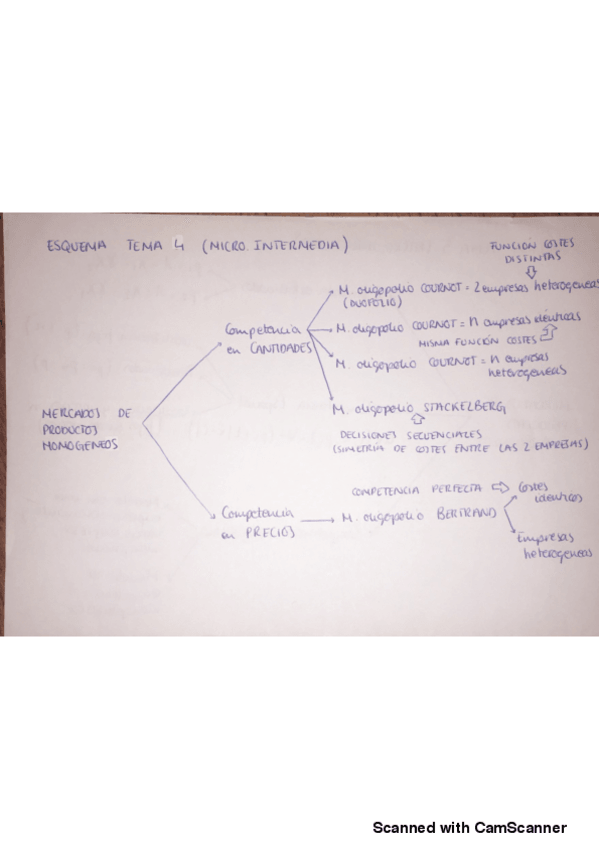 ESQUEMA TEMA 4 (MICRO. INTERMEDIA)
FUNCIÓN COSTES
DISTINTAS
M. oligopolio COURNOT = 2 empresas heterogéneas
(DUOPOLIO)
Competencia
en CANTIDADES
M. oligopolio COURNOT = n empresas idénticas
MISMA FUNCIÓN COSTES
M. oligopolio COURNOT = n empresas
heterogéneas
MERCADOS DE
PRODUCTOS
MONOGÉNEOS
M. oligopolio STACKELBERG
DECISIONES SECUENCIALES
(SIMETRÍA DE COSTES ENTRE LAS 2 EMPRESAS)
Competencia
en PRECIOS
COMPETENCIA PERFECTA
Costes
idénticos
M. oligopolio BERTRAND
Empresas
heterogéneas
Scanned with CamScanner